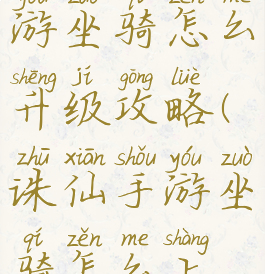 yóu zuò qí zěn me
游坐骑怎么
shēng jí gōng lüè
升级攻略(
zhū xiān shǒu yóu zuò
诛仙手游坐
qí zěn me shàng
骑怎么上